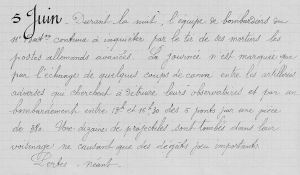 5 Juin. Durant la nuit, l'équipe de bombardiers du
11e batt.on continue à inquiéter par le tir de ses mortiers les
postes allemands avancés. La journée n'est marquée que
par l'échange de quelques coups de canon entre les artilleries
adverses qui cherchent à détruire leurs observatoires et par un
bombardement entre 15h et 16h30 des 5 ponts par une pièce
de 380. Une dizaine de projectiles sont tombés dans leur
voisinage ne causant que des dégâts peu importants.
Pertes : néant.